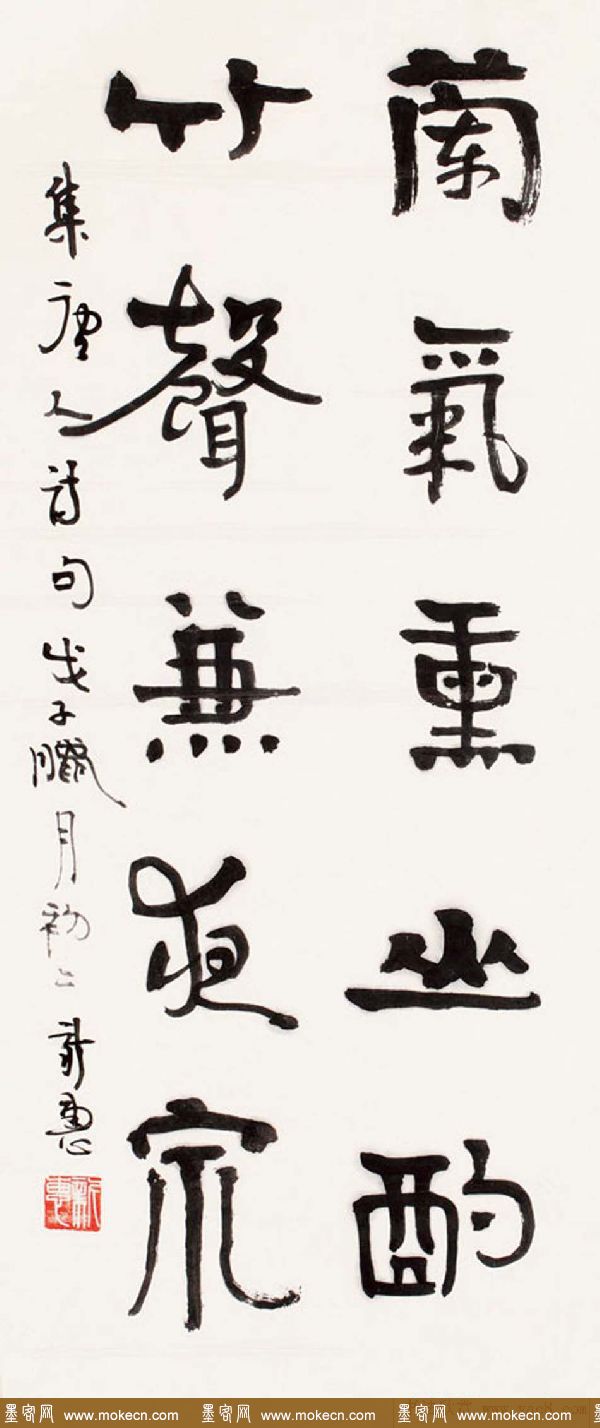 蘭氣熏山酌
竹聲兼夜泉
集唐人詩句戊子臘月初二 新惠
墨客网 www.mokecn.com 墨客网 www.mokecn.com 墨客网 www.mokecn.com